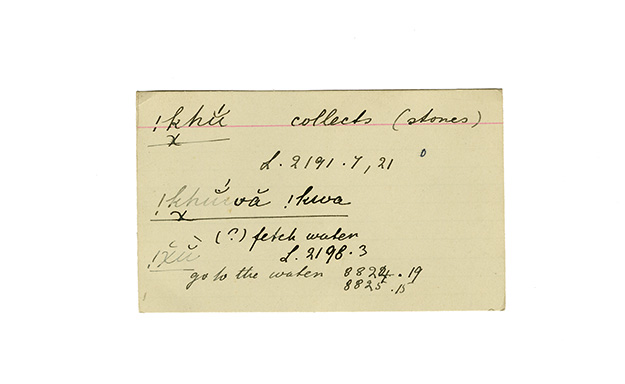 !k̬hŭ́ collects (stones)
L. 2191. 7, 21
!k̬hŭ́vă !kwa
(?) fetch water
!x̆ŭ̀ L. 2198. 3
go to the water 8824. 19
8825. 15